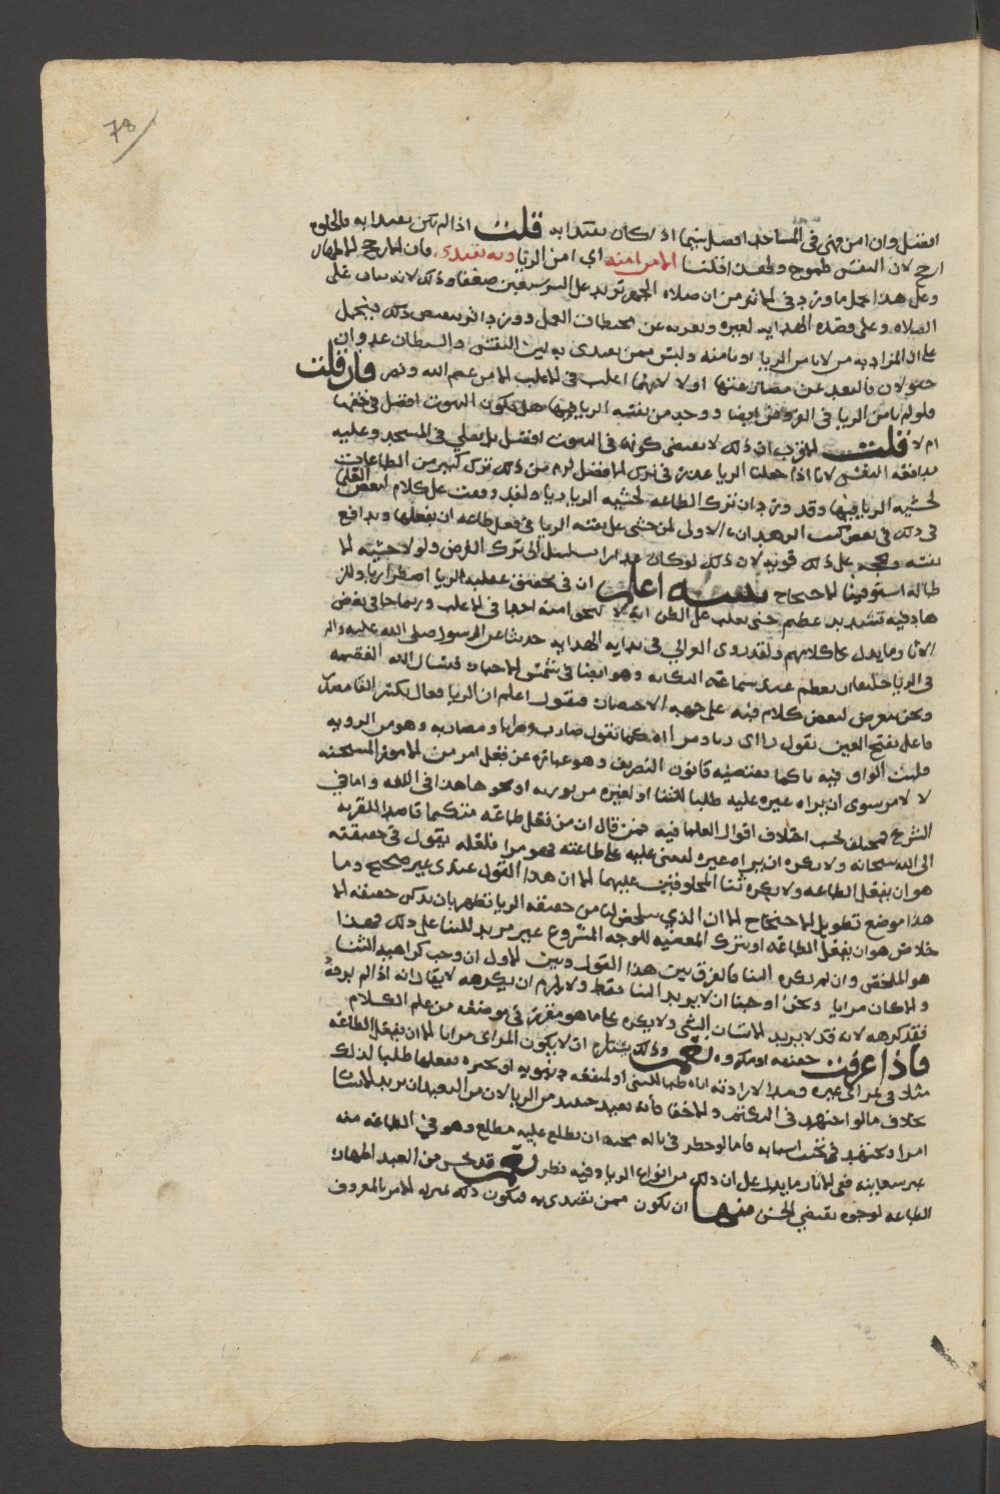 78
افضل وان امن فهي في المساجد افضل سيما اذا كان يقتدا به قلت اذا لم يكن يقتدا به فالخلوة
ارجح لان النفس طموح ولهذا قلنا الا من امنه اي امن الريا وبه يقتدى فان الارجح الاظهار
وعلى هذا يحمل ما ورد في الاثر من ان صلاة الجهر تزيد على السر سبعين ضعفا وذلك لانه
الصلاة وعلى قصده الهداية لغيره وبعده عن محبطات العمل وورد اثر بعكس ذلك فيحمل
على ان المراد به من لا يامن الريا او يامنه وليس ممن يقتدى به لان النفس والشيطان عدوان
فالبعد عن اولا لانهما اغلب في الاغلب الا من عصم الله فان قلت
فلو لم يامن الريا في الفروض ايضا ووجد من نفسه الريا فيها هل يكون البيوت افضل في حقها
ام لا قلت الاقرب ان ذلك لا يقتضي كونه في البيوت افضل بل يصلي في المسجد وعليه
مدافعة النفس لانا اذا جعلنا الريا عذرا في ترك الافضل لزم من ذلك ترك كثير من الطاعات
لخشية الريا فيها وقد ورد ان ترك الطاعة لخشية الريا ريا ولقد وقفت على كلام لبعض العلما
في ذلك في بعض كتب الزهد ان الاولى لمن خشي على نفسه الريا في فعل طاعة ان يفعلها ويدافع
نفسه على ذلك قوية لان ذلك لو كان عذرا تسلسل الى ترك الفرض ولولا خشية الا
طالة استوفينا الاحتجاج تنبيه اعلم ان في تحقيق حقيقة الريا اضطرابا ولان
هاد فيه تشديد عظيم حتى يغلب على الظن انه لا ينجو منه احد في الاغلب وربما جا في بعض
الاثار ما يدل على كلامهم ولقد روى الغزالي في بداية الهداية حديثا عن الرسول صلى الله عليه واله
في الريا وهو ايضا في شمس الاخبار فنسال الله العصمة
ونحن نعرض لبعض كلام فيه على جهة الاختصار فنقول اعلم ان الريا فعال بكسر الفا مصدر
فاعل بفتح العين نقول راأى رياء ومراااة كما نقول ضارب ضرابا ومضاربة وهو من الرؤية
قلبت الواو فيه يا كما يقتضيه قانون التصريف وهو عبارة عن فعل امر من الامور المستحسنة
لا لامر سوى ان يراه غيره عليه طلبا للثنا او لغيره من تورية او نحو هذا في اللغة واما في
الشرع فمختلف بحسب اختلاف اقوال العلما فيه فمن قال ان من فعل طاعة متكتما قاصدا القربة
الى الله سبحانه ولا يكره ان يراه غيره ليثنى عليه على طاعته فهو مرا فلعله يقول في حقيقته
هو ان يفعل الطاعة ولا يكره ثنا المخلوقين عليها الا ان هذا القول عندي غير صحيح وما
هذا موضع تطويل الاحتجاج الا ان الذي يتلخص لنا من حقيقة الريا نظهر بان نذكر حقيقة الا
خلاص هو ان يفعل الطاعة او يترك المعصية للوجه المشروع غير مريد للثنا على ذلك فهذا
هو الملخص وان لم يكره الثنا فالفرق بين هذا القول وبين الاول ان وجب كراهية الثنا
والا كان مرايا ونحن اوجبنا ان لا يريد الثنا فقط ولا يلزم ان يكرهه لا يقال انه اذا لم يرده
فقد كرهه لانه قد لا يريد الانسان الشي ولا يكرهه على ما هو مقرر في موضعه من علم الكلام
فاذا عرفت حقيقته نعم وذلك يستلزم ان لا يكون المراى مرايا الا ان يفعل الطاعة
مثلا في مراى غيره وهذا لارادته اياه طلبا للثنى او لمنفعة دنيوية او نحوه يفعلها طلبا لذلك
بخلاف ما لو اجتهد في التكتم والاخفا فانه بعيد حينئذ من الريا لان من البعيد ان يريد الانسان
امرا ويجتهد في تجنب اسبابه فاما لو خطر في باله محبة ان يطلع عليه مطلع وهو في الطاعة منه
غير ففي الاثار ما يدل على ان ذلك من انواع الريا وفيه نظر نعم قد يحسن من العبد اظهار
الطاعة لوجوه تقتضي الحسن منها ان يكون ممن يقتدى به فيكون ذلك بمنزلة الامر بالمعروف